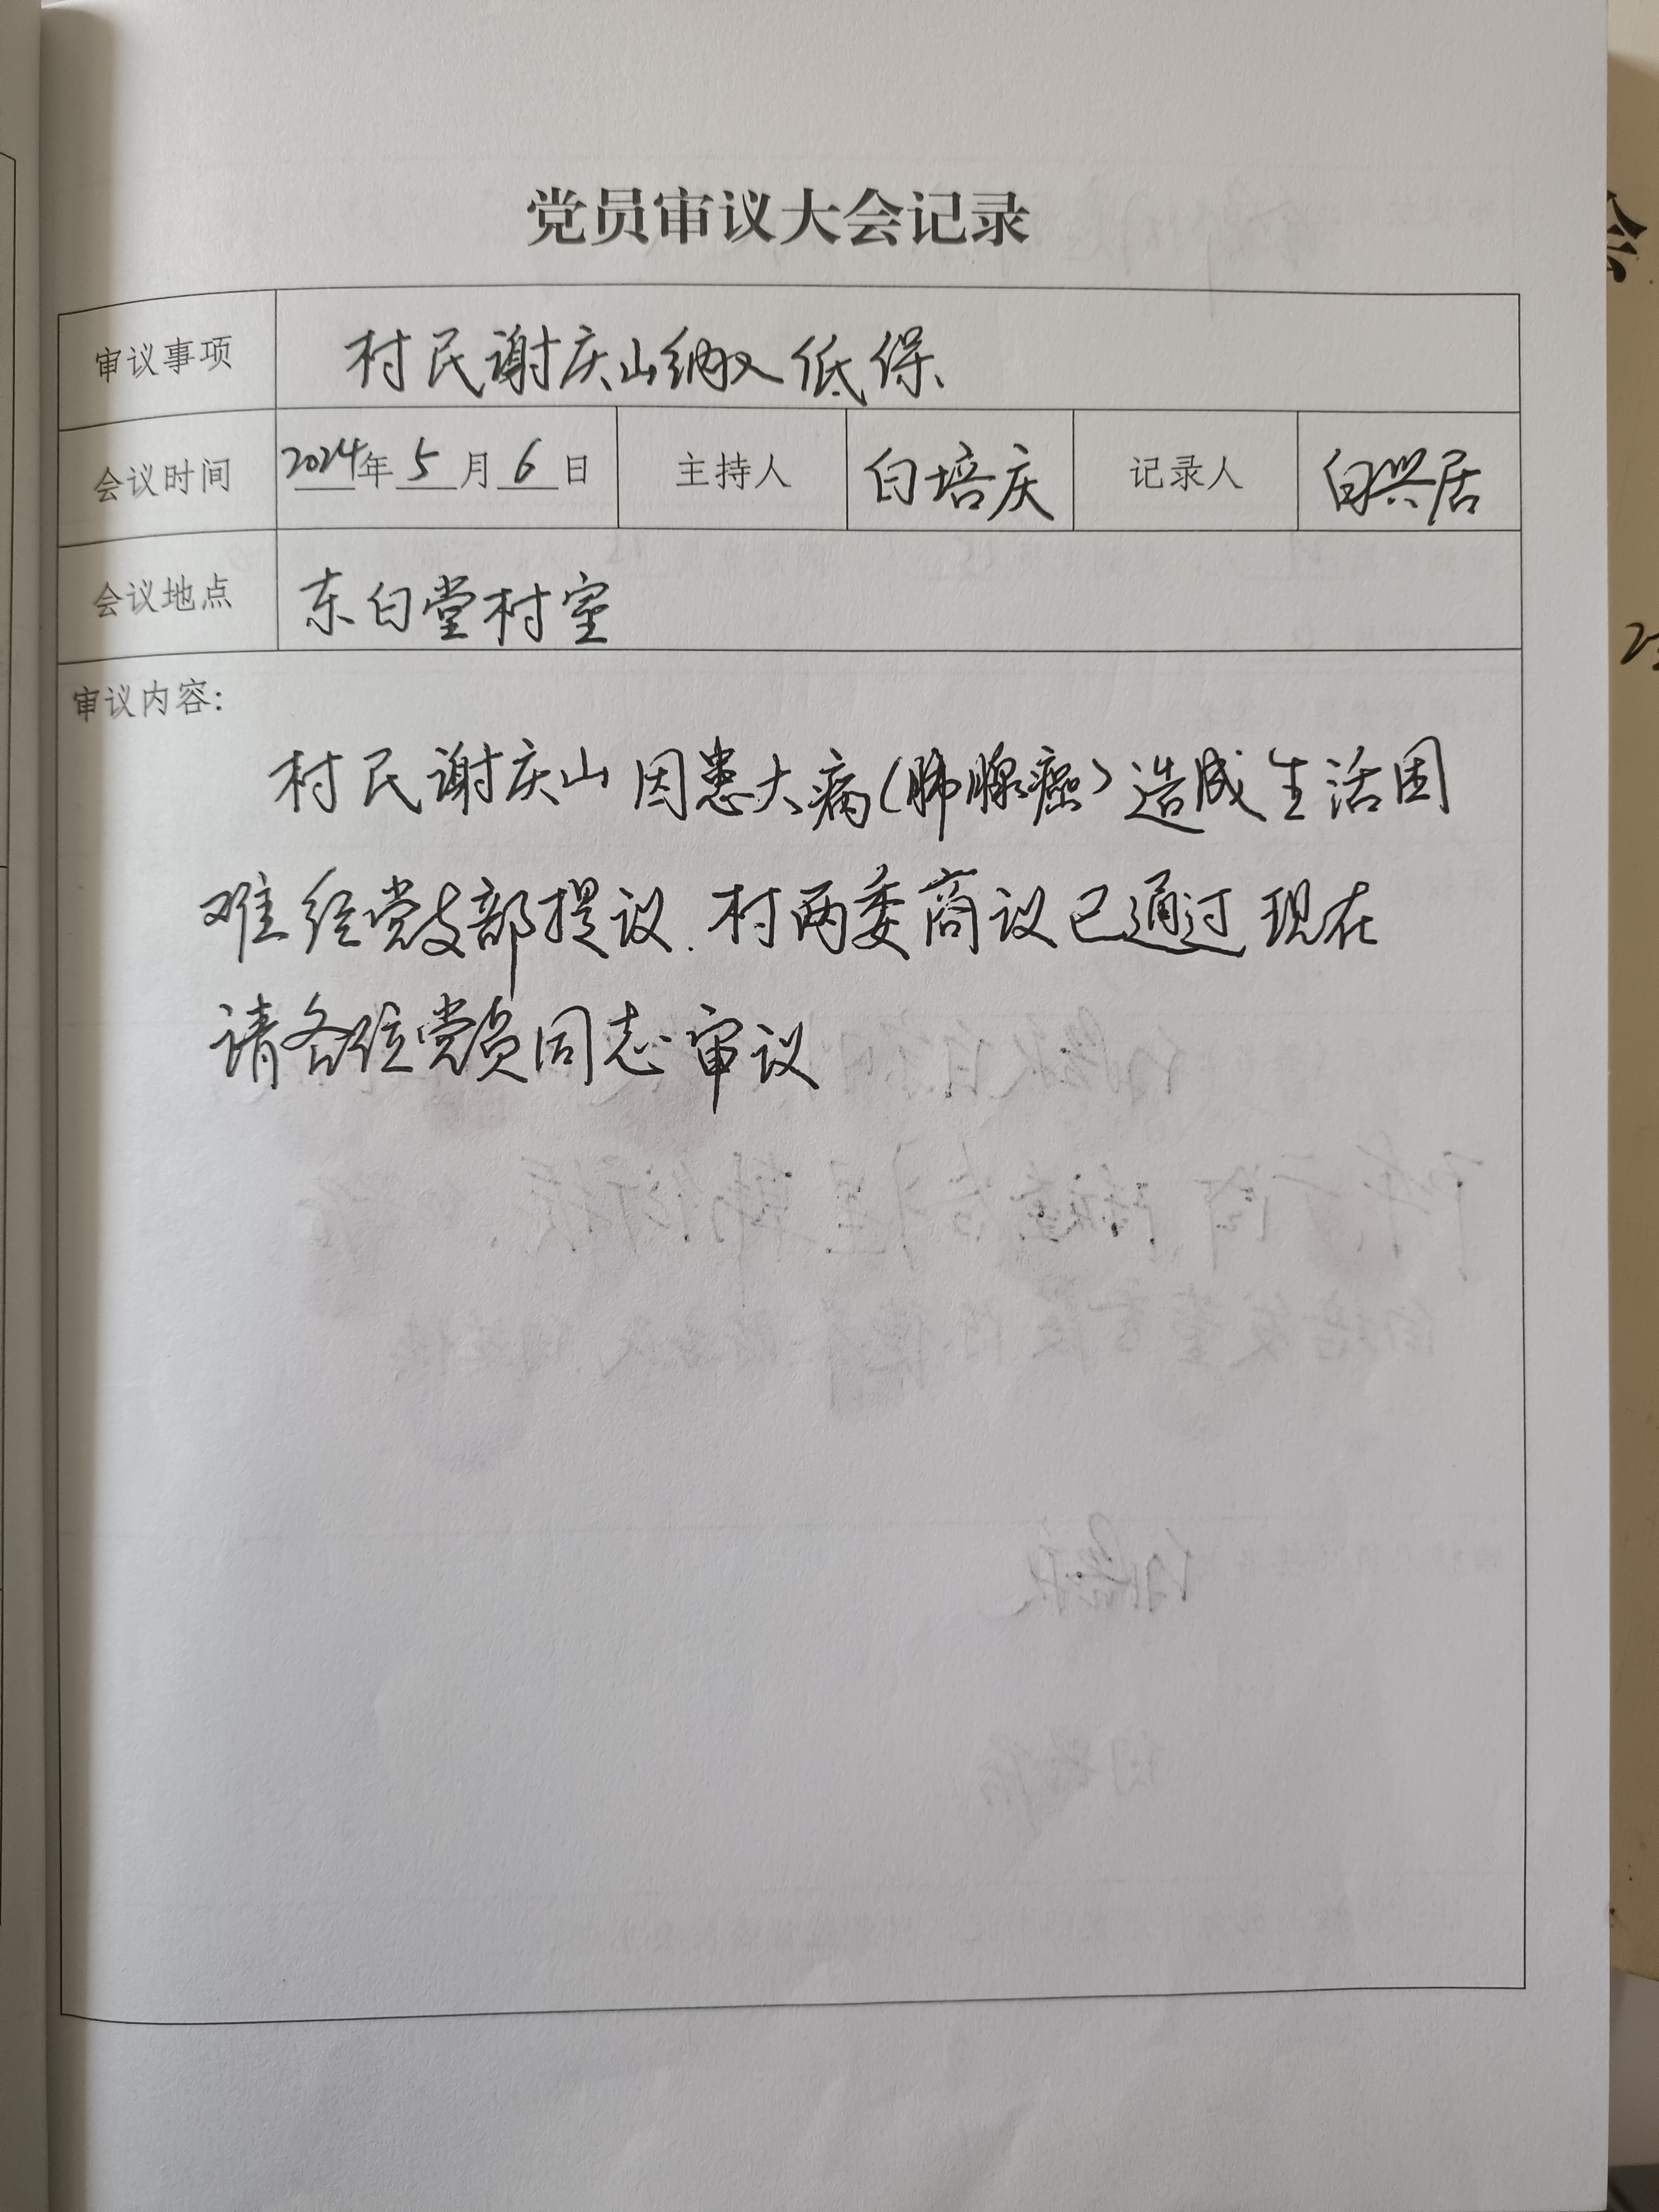 党员审议大会记录
审议事项 村民谢庆山纳入低保
会议时间 2024年5月6日 主持人 白培庆 记录人 白兴居
会议地点 东白堂村室
审议内容:
村民谢庆山因患大病(肺腺癌)造成生活困
难经党支部提议.村两委商议已通过现在
请各位党员同志审议